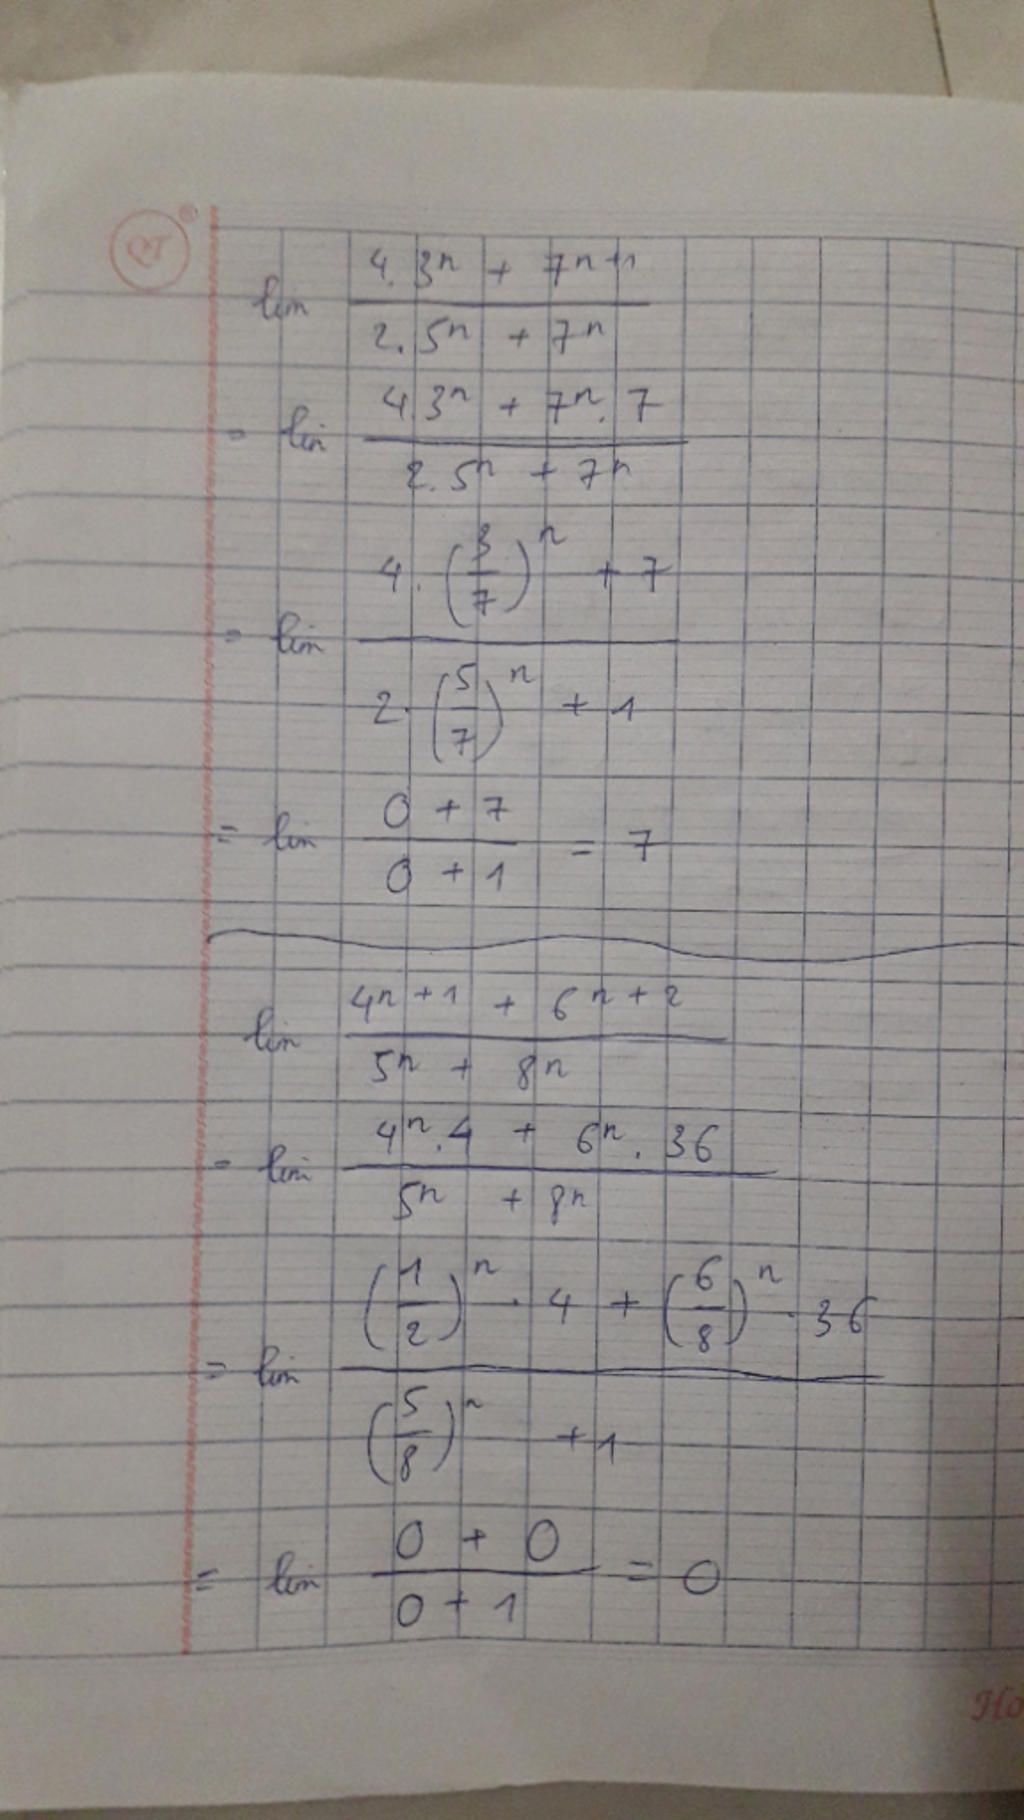 lim (4. 3^n + 7^(n+1)) / (2. 5^n + 7^n)
= lim (4.3^n + 7^n. 7) / (2. 5^n + 7^n)
= lim (4. (3/7)^n + 7) / (2. (5/7)^n + 1)
= lim (0 + 7) / (0 + 1) = 7
lim (4^(n+1) + 6^(n+2)) / (5^n + 8^n)
= lim (4^n.4 + 6^n. 36) / (5^n + 8^n)
= lim ((1/2)^n . 4 + (6/8)^n . 36) / ((5/8)^n + 1)
= lim (0 + 0) / (0 + 1) = 0